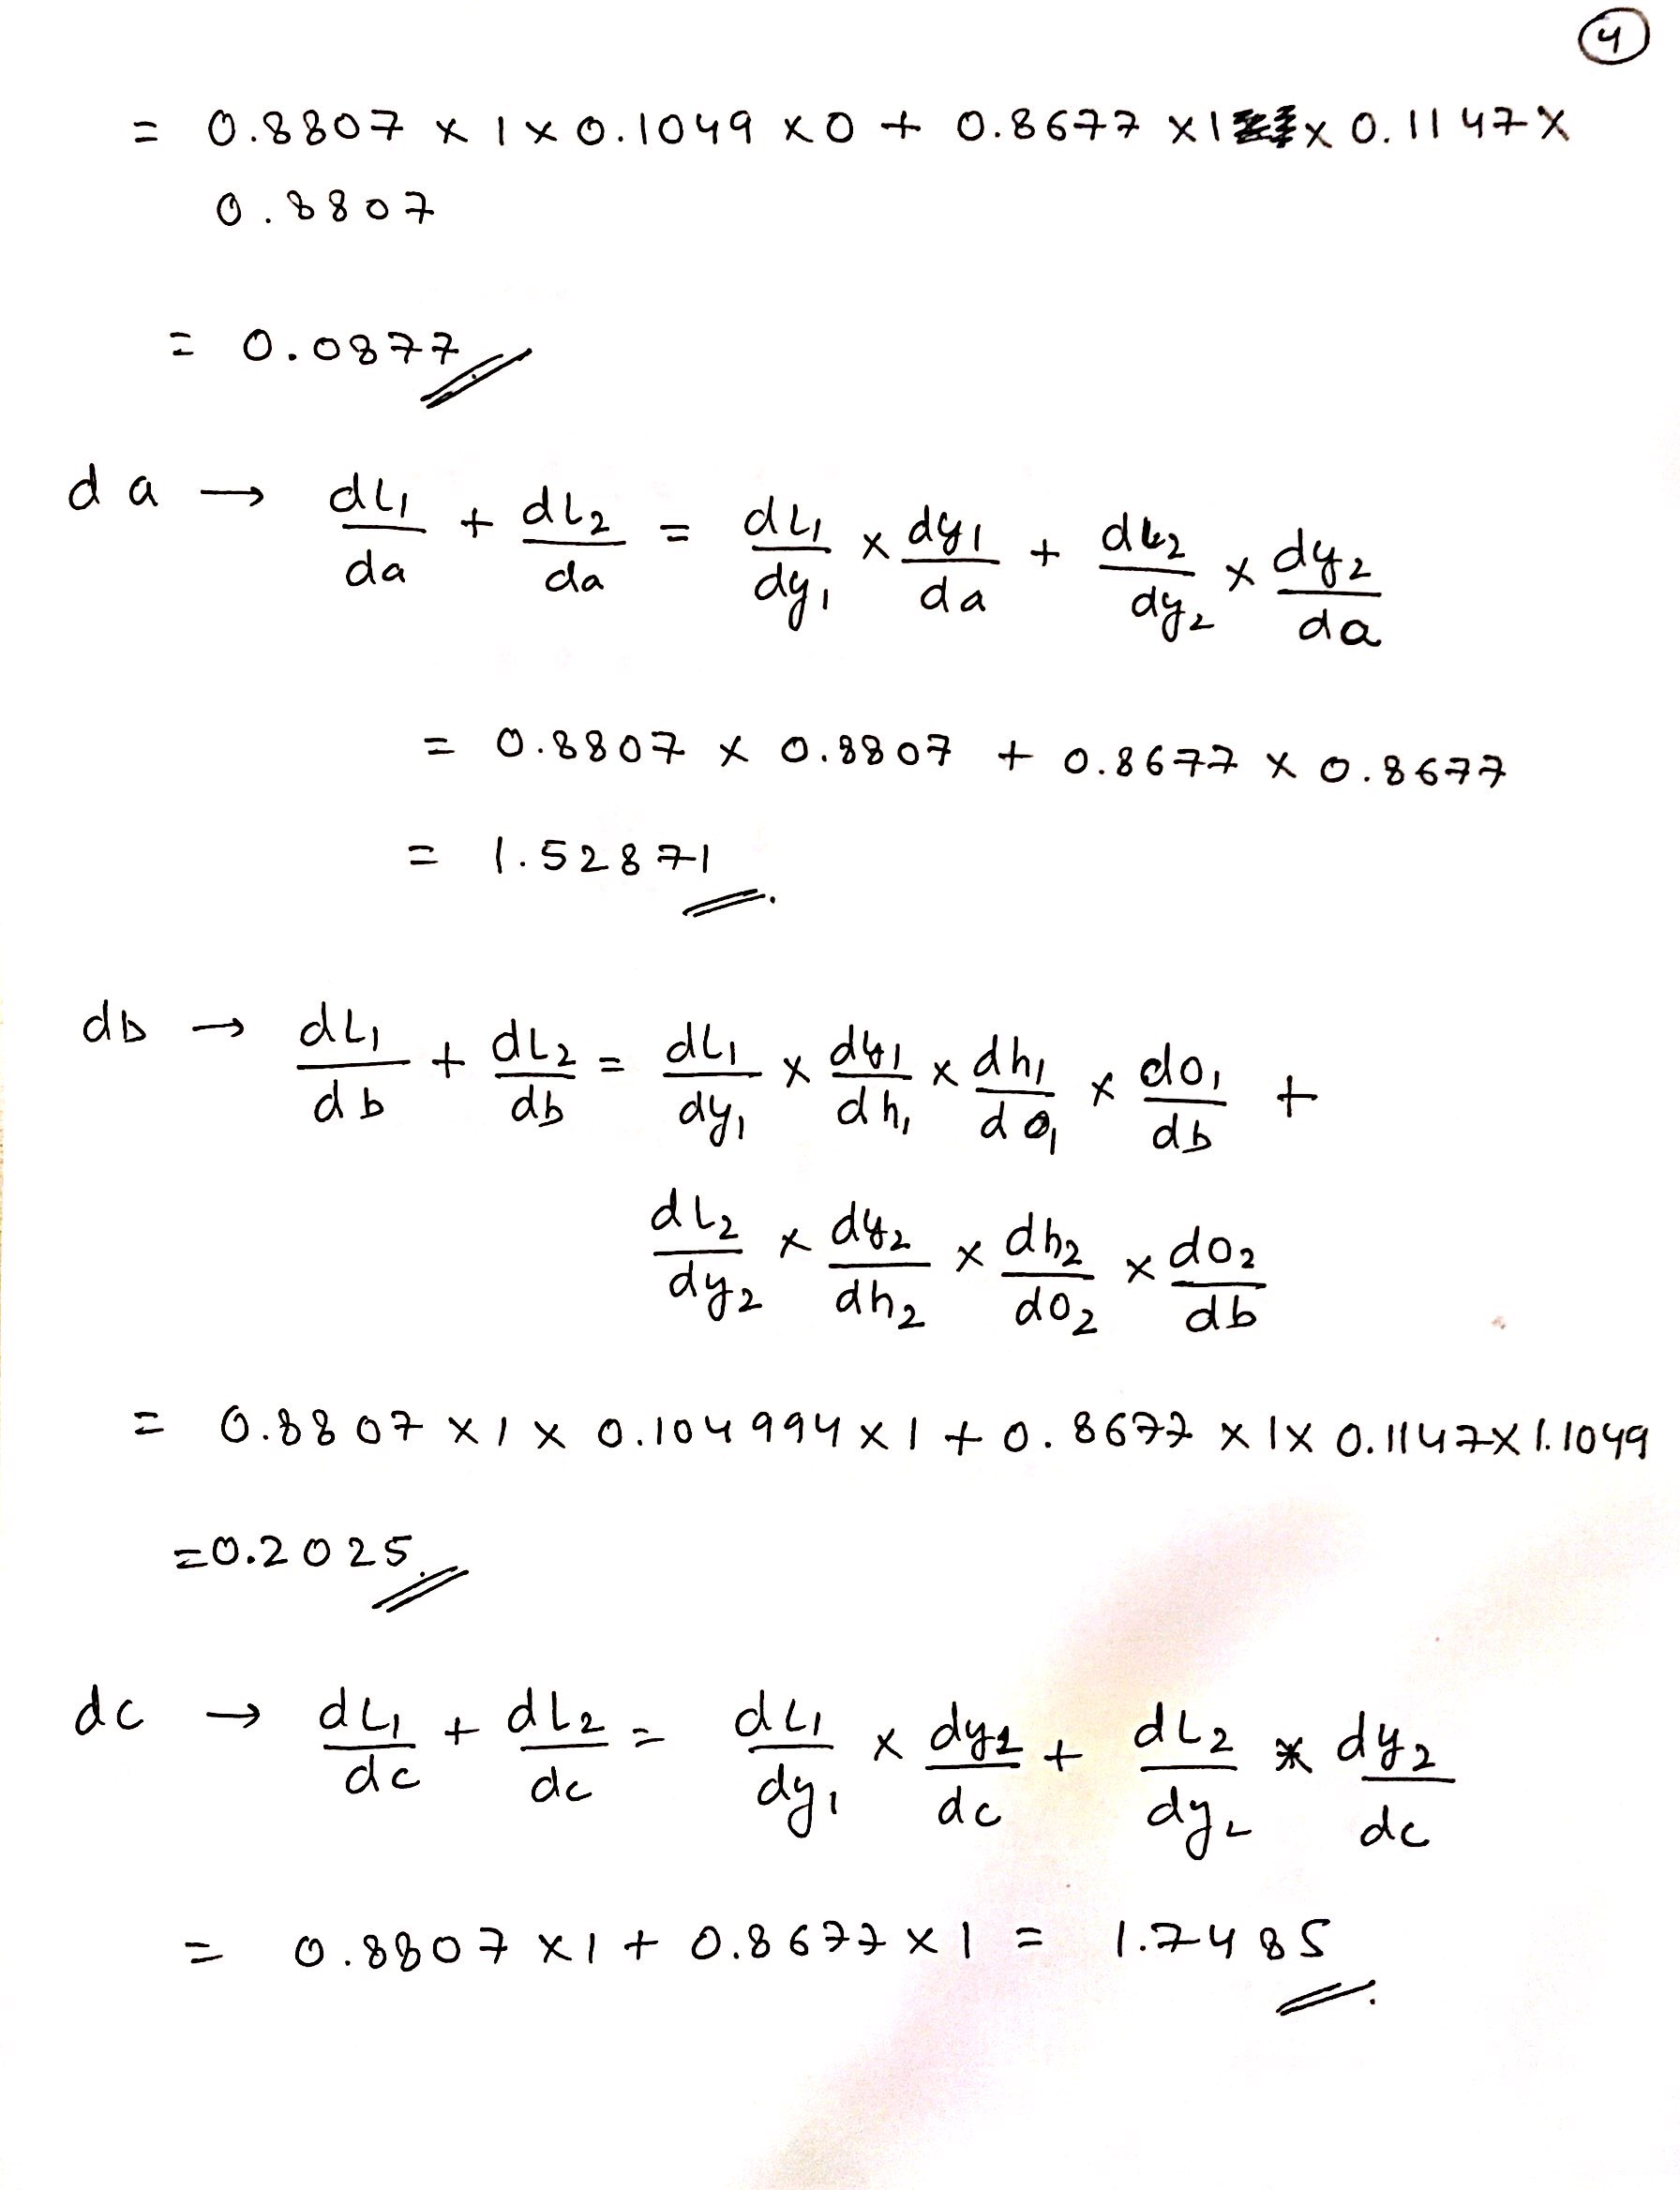 4
= 0.8807 × 1 × 0.1049 × 0 + 0.8677 × 1 × 0.1147 ×
0.8807
= 0.0877
da → dL₁/da + dL₂/da = dL₁/dy₁ × dy₁/da + dL₂/dy₂ × dy₂/da
= 0.8807 × 0.8807 + 0.8677 × 0.8677
= 1.52871
db → dL₁/db + dL₂/db = dL₁/dy₁ × dy₁/dh₁ × dh₁/do₁ × do₁/db +
dL₂/dy₂ × dy₂/dh₂ × dh₂/do₂ × do₂/db
= 0.8807 × 1 × 0.104994 × 1 + 0.8677 × 1 × 0.1147 × 1.1049
= 0.2025
dc → dL₁/dc + dL₂/dc = dL₁/dy₁ × dy₁/dc + dL₂/dy₂ × dy₂/dc
= 0.8807 × 1 + 0.8677 × 1 = 1.7485